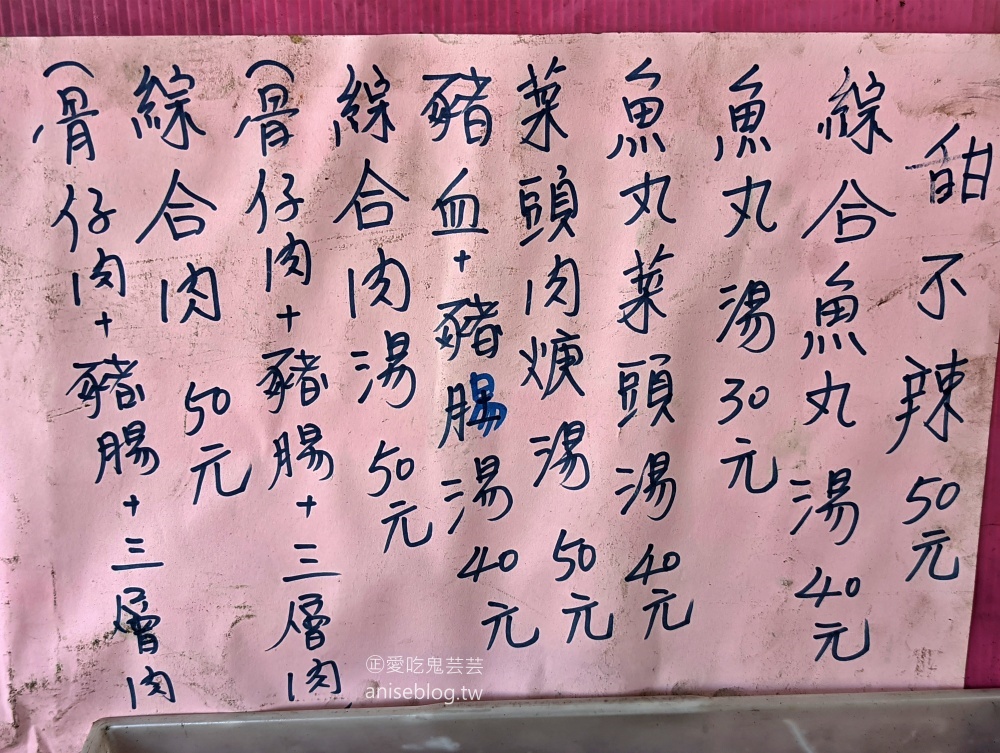 甜不辣50元
綜合魚丸湯40元
魚丸湯30元
魚丸菜頭湯40元
菜頭肉焿湯50元
豬血+豬腸湯40元
綜合肉湯50元
(骨仔肉+豬腸+三層肉
綜合肉50元
(骨仔肉+豬腸+三層肉
㊣愛吃鬼芸芸
aniseblog.tw